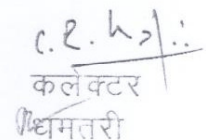 कलेक्टर
धमतरी